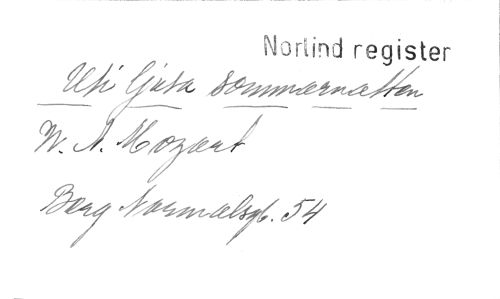 Norlind register
Uti ljusa sommarnatten
W. A. Mozart
Berg Normalsgb. 54